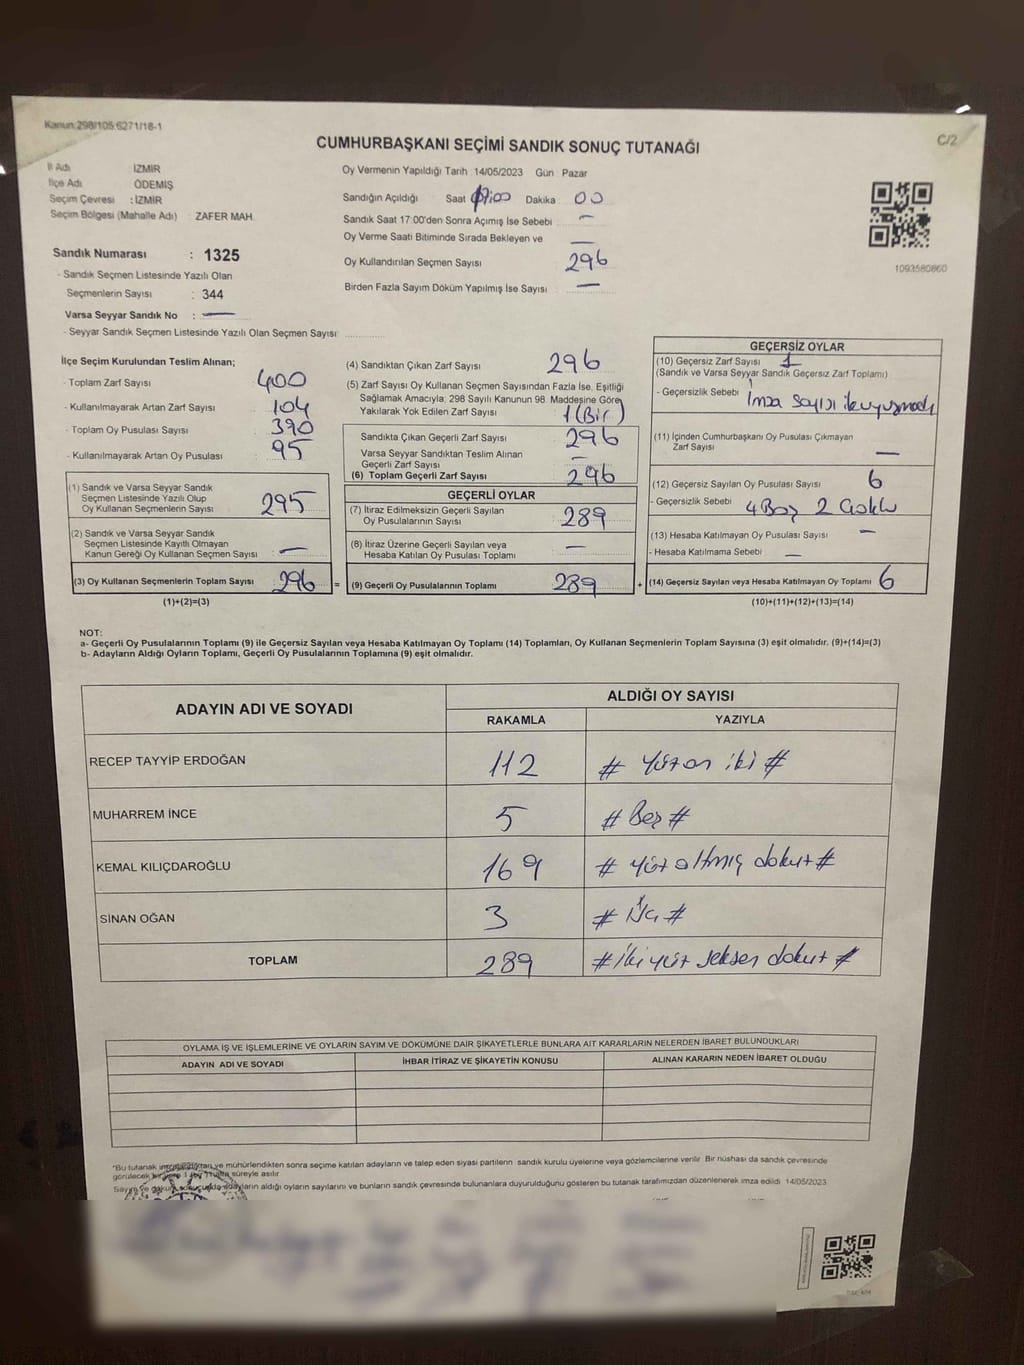 Kanun:298/105:6271/18-1
C/2
CUMHURBAŞKANI SEÇİMİ SANDIK SONUÇ TUTANAĞI
İl Adı İZMİR
İlçe Adı ÖDEMİŞ
Seçim Çevresi : İZMİR
Seçim Bölgesi (Mahalle Adı) : ZAFER MAH.
Sandık Numarası : 1325
- Sandık Seçmen Listesinde Yazılı Olan
Seçmenlerin Sayısı : 344
Varsa Seyyar Sandık No : —
- Seyyar Sandık Seçmen Listesinde Yazılı Olan Seçmen Sayısı
Oy Vermenin Yapıldığı Tarih : 14/05/2023 Gün : Pazar
Sandığın Açıldığı Saat 17:00 Dakika 00
Sandık Saat 17:00'den Sonra Açımış İse Sebebi —
Oy Verme Saati Bitiminde Sırada Bekleyen ve —
Oy Kullandırılan Seçmen Sayısı 296
Birden Fazla Sayım Döküm Yapılmış İse Sayısı —
1093580860
İlçe Seçim Kurulundan Teslim Alınan;
- Toplam Zarf Sayısı 400
- Kullanılmayarak Artan Zarf Sayısı : 104
- Toplam Oy Pusulası Sayısı : 390
- Kullanılmayarak Artan Oy Pusulası : 95
(1) Sandık ve Varsa Seyyar Sandık
Seçmen Listesinde Yazılı Olup
Oy Kullanan Seçmenlerin Sayısı 295
(2) Sandık ve Varsa Seyyar Sandık
Seçmen Listesinde Kayıtlı Olmayan
Kanun Gereği Oy Kullanan Seçmen Sayısı —
(3) Oy Kullanan Seçmenlerin Toplam Sayısı 296 =
(1)+(2)=(3)
(4) Sandıktan Çıkan Zarf Sayısı 296
(5) Zarf Sayısı Oy Kullanan Seçmen Sayısından Fazla İse, Eşitliği
Sağlamak Amacıyla; 298 Sayılı Kanunun 98. Maddesine Göre
Yakılarak Yok Edilen Zarf Sayısı 1 (Bir)
Sandıkta Çıkan Geçerli Zarf Sayısı 296
Varsa Seyyar Sandıktan Teslim Alınan
Geçerli Zarf Sayısı —
(6) Toplam Geçerli Zarf Sayısı 296
GEÇERLİ OYLAR
(7) İtiraz Edilmeksizin Geçerli Sayılan
Oy Pusulalarının Sayısı 289
(8) İtiraz Üzerine Geçerli Sayılan veya
Hesaba Katılan Oy Pusulası Toplamı —
(9) Geçerli Oy Pusulalarının Toplamı 289 +
GEÇERSİZ OYLAR
(10) Geçersiz Zarf Sayısı 1
(Sandık ve Varsa Seyyar Sandık Geçersiz Zarf Toplamı)
- Geçersizlik Sebebi İmza sayısı ile uyuşmadı
(11) İçinden Cumhurbaşkanı Oy Pusulası Çıkmayan
Zarf Sayısı —
(12) Geçersiz Sayılan Oy Pusulası Sayısı 6
- Geçersizlik Sebebi 4 Boş 2 Çoklu
(13) Hesaba Katılmayan Oy Pusulası Sayısı —
- Hesaba Katılmama Sebebi —
(14) Geçersiz Sayılan veya Hesaba Katılmayan Oy Toplamı 6
(10)+(11)+(12)+(13)=(14)
NOT:
a- Geçerli Oy Pusulalarının Toplamı (9) ile Geçersiz Sayılan veya Hesaba Katılmayan Oy Toplamı (14) Toplamları, Oy Kullanan Seçmenlerin Toplam Sayısına (3) eşit olmalıdır. (9)+(14)=(3)
b- Adayların Aldığı Oyların Toplamı, Geçerli Oy Pusulalarının Toplamına (9) eşit olmalıdır.
ADAYIN ADI VE SOYADI ALDIĞI OY SAYISI
RAKAMLA YAZIYLA
RECEP TAYYİP ERDOĞAN 112 # Yüz on iki #
MUHARREM İNCE 5 # Beş #
KEMAL KILIÇDAROĞLU 169 # Yüz altmış dokuz #
SİNAN OĞAN 3 # Üç #
TOPLAM 289 # İki yüz seksen dokuz #
OYLAMA İŞ VE İŞLEMLERİNE VE OYLARIN SAYIM VE DÖKÜMÜNE DAİR ŞİKAYETLERLE BUNLARA AİT KARARLARIN NELERDEN İBARET BULUNDUKLARI
ADAYIN ADI VE SOYADI İHBAR İTİRAZ VE ŞİKAYETİN KONUSU ALINAN KARARIN NEDEN İBARET OLDUĞU
*Bu tutanak ve mühürlendikten sonra seçime katılan adayların ve talep eden siyasi partilerin sandık kurulu üyelerine veya gözlemcilerine verilir. Bir nüshası da sandık çevresinde
görülecek süreyle asılır.
Sayım ve adayların aldığı oyların sayılarını ve bunların sandık çevresinde bulunanlara duyurulduğunu gösteren bu tutanak tarafımızdan düzenlenerek imza edildi. 14/05/2023